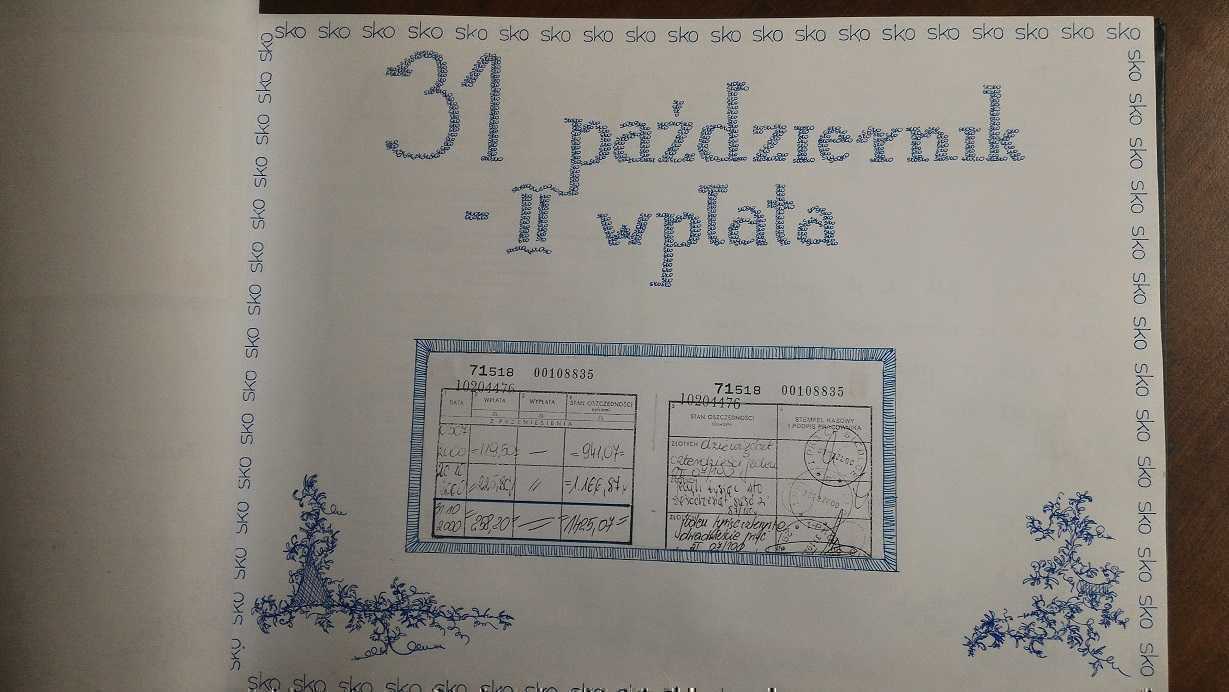 sko sko sko sko sko sko sko sko sko sko sko sko sko sko sko sko sko sko sko sko sko
31 październik
- II wpłata
71518 00108835
10204476
DATA WPŁATA WYPŁATA STAN OSZCZĘDNOŚCI
Z PRZENIESIENIA
2000 =119,50 — =941,07=
=225,80 〃 =1.166,87
31 10
2000 =258,20= — =1425,07=
71518 00108835
10204476
STAN OSZCZĘDNOŚCI STEMPEL KASOWY
I PODPIS PRACOWNIKA
ZŁOTYCH dziewięćset
czterdzieści jeden
07/100
tysiąc sto
sześćdziesiąt sześć zł
87/100
jeden tysiąc czterysta
dwadzieścia pięć
zł 07/100